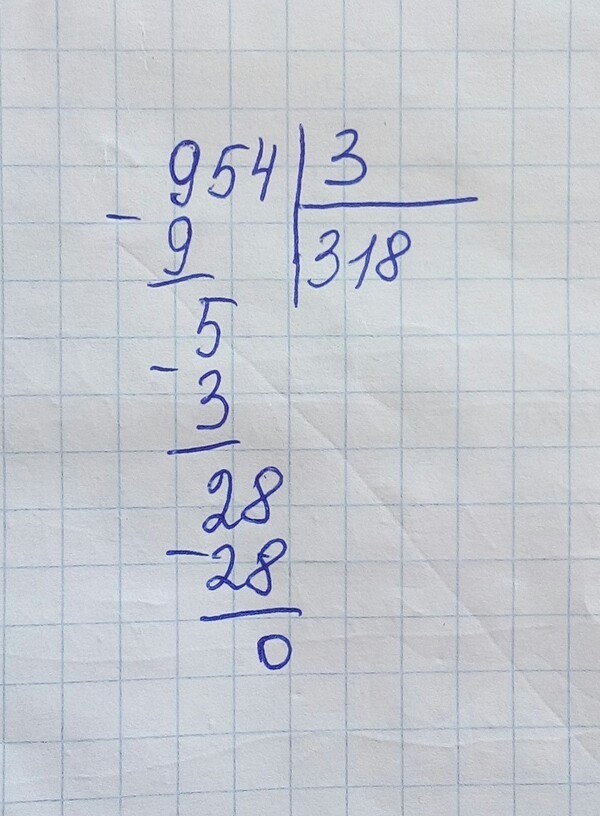 954 | 3
- 9 | 318
5
- 3
28
- 28
0